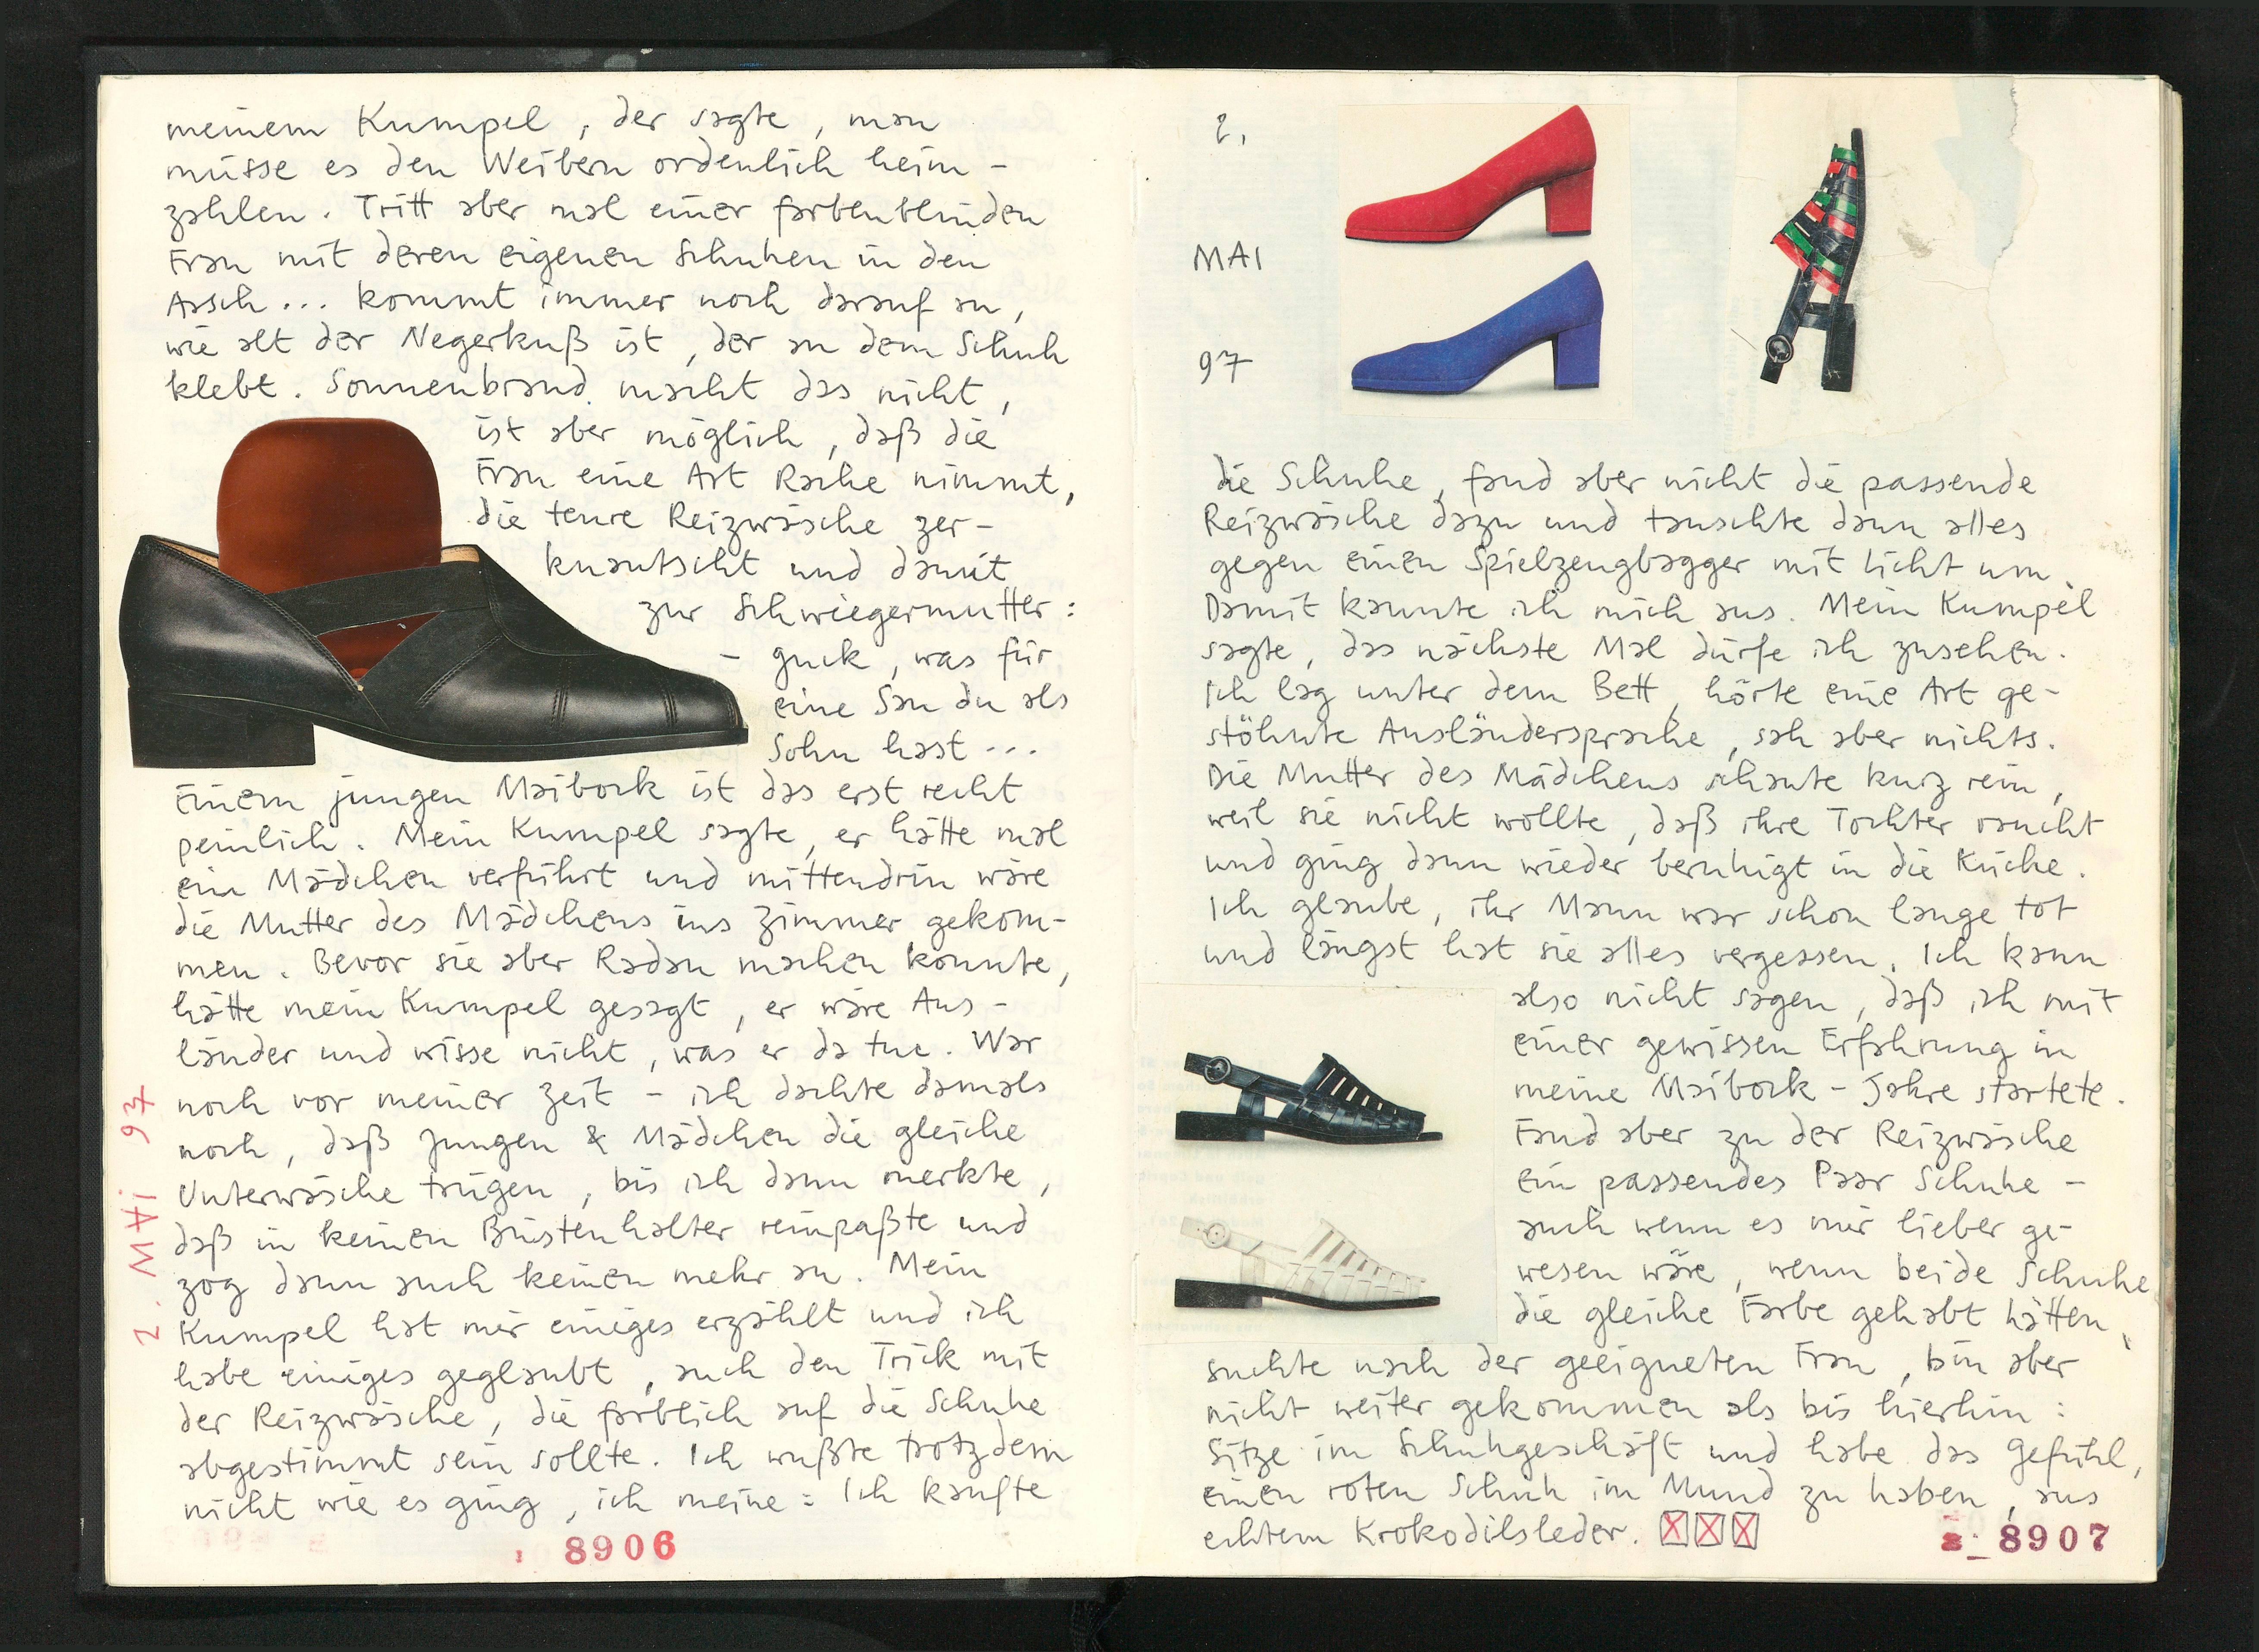 meinem Kumpel, der sagte, man
müsse es den Weibern ordenlich heim-
zahlen. Tritt aber mal einer farbenblinden
Frau mit deren eigenen Schuhen in den
Assch... kommt immer noch darauf an,
wie alt der Negerkuß ist, der an dem Schuh
klebt. Sonnenbrand macht das nicht,
ist aber möglich, daß die
Frau eine Art Rache nimmt,
die teure Reizwäsche zer-
knautscht und damit
zur Schwiegermutter:
- guck, was für
eine Sau du als
Sohn hast...
Einem jungen Maibock ist das erst recht
peinlich. Mein Kumpel sagte, er hätte mal
ein Mädchen verführt und mittendrin wäre
die Mutter des Mädchens ins Zimmer gekom-
men. Bevor sie aber Radau machen konnte,
hätte mein Kumpel gesagt, er wäre Aus-
länder und wisse nicht, was er da tue. War
noch vor meiner Zeit - ich dachte damals
noch, daß Jungen & Mädchen die gleiche
Unterwäsche trügen, bis ich dann merkte,
daß in keinen Büstenhalter reinpaßte und
zog dann auch keinen mehr an. Mein
Kumpel hat mir einiges erzählt und ich
habe einiges geglaubt, auch den Trick mit
der Reizwäsche, die farblich auf die Schuhe
abgestimmt sein sollte. Ich wußte trotzdem
nicht wie es ging, ich meine: Ich kaufte
2. MAi 97
8906
2.
MAI
97
die Schuhe, fand aber nicht die passende
Reizwäsche dazu und tauschte dann alles
gegen einen Spielzeugbagger mit Licht um.
Damit kannte ich mich aus. Mein Kumpel
sagte, das nächste Mal dürfe ich zusehen.
Ich lag unter dem Bett, hörte eine Art ge-
stöhnte Ausländersprache, sah aber nichts.
Die Mutter des Mädchens schaute kurz rein,
weil sie nicht wollte, daß ihre Tochter raucht
und ging dann wieder beruhigt in die Küche.
Ich glaube, ihr Mann war schon lange tot
und längst hat sie alles vergessen. Ich kann
also nicht sagen, daß ich mit
einer gewissen Erfahrung in
meine Maibock-Jahre startete.
Fand aber zu der Reizwäsche
ein passendes Paar Schuhe -
auch wenn es mir lieber ge-
wesen wäre, wenn beide Schuhe
die gleiche Farbe gehabt hätten,
suchte nach der geeigneten Frau, bin aber
nicht weiter gekommen als bis hierhin:
Sitze im Schuhgeschäft und habe das Gefühl,
einen roten Schuh im Mund zu haben, aus
echtem Krokodilsleder.
8907